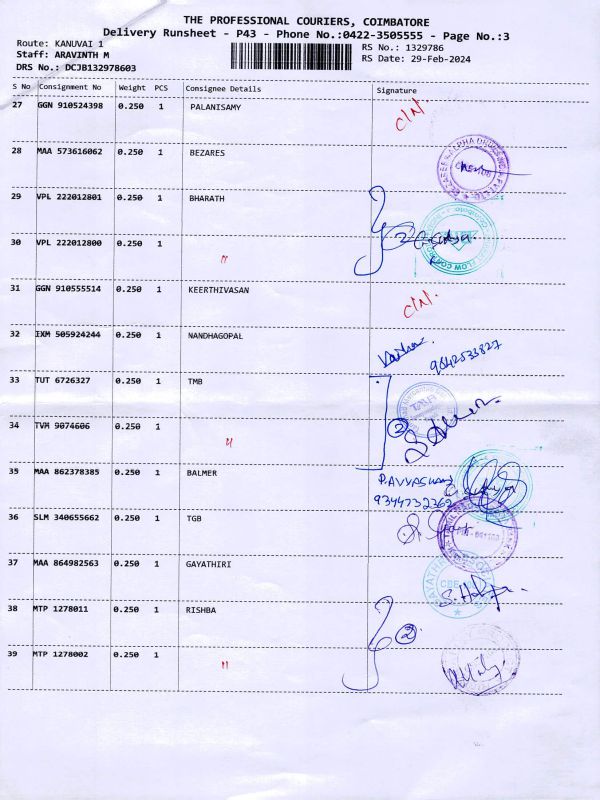 THE PROFESSIONAL COURIERS, COIMBATORE
Delivery Runsheet - P43 - Phone No.:0422-3505555 - Page No.:3
Route: KANUVAI 1
RS No.: 1329786
Staff: ARAVINTH M
RS Date: 29-Feb-2024
DRS No.: DCJB132978603
S No Consignment No Weight PCS Consignee Details Signature
27 GGN 910524398 0.250 1 PALANISAMY C/N.
28 MAA 573616062 0.250 1 BEZARES
29 VPL 222012801 0.250 1 BHARATH
30 VPL 222012800 0.250 1 "
31 GGN 910555514 0.250 1 KEERTHIVASAN C/N.
32 IXM 505924244 0.250 1 NANDHAGOPAL
9842533827
33 TUT 6726327 0.250 1 TMB
34 TVM 9074606 0.250 1 " 2
35 MAA 862378385 0.250 1 BALMER
9344732362
36 SLM 340655662 0.250 1 TGB
37 MAA 864982563 0.250 1 GAYATHIRI
38 MTP 1278011 0.250 1 RISHBA 2
39 MTP 1278002 0.250 1 "